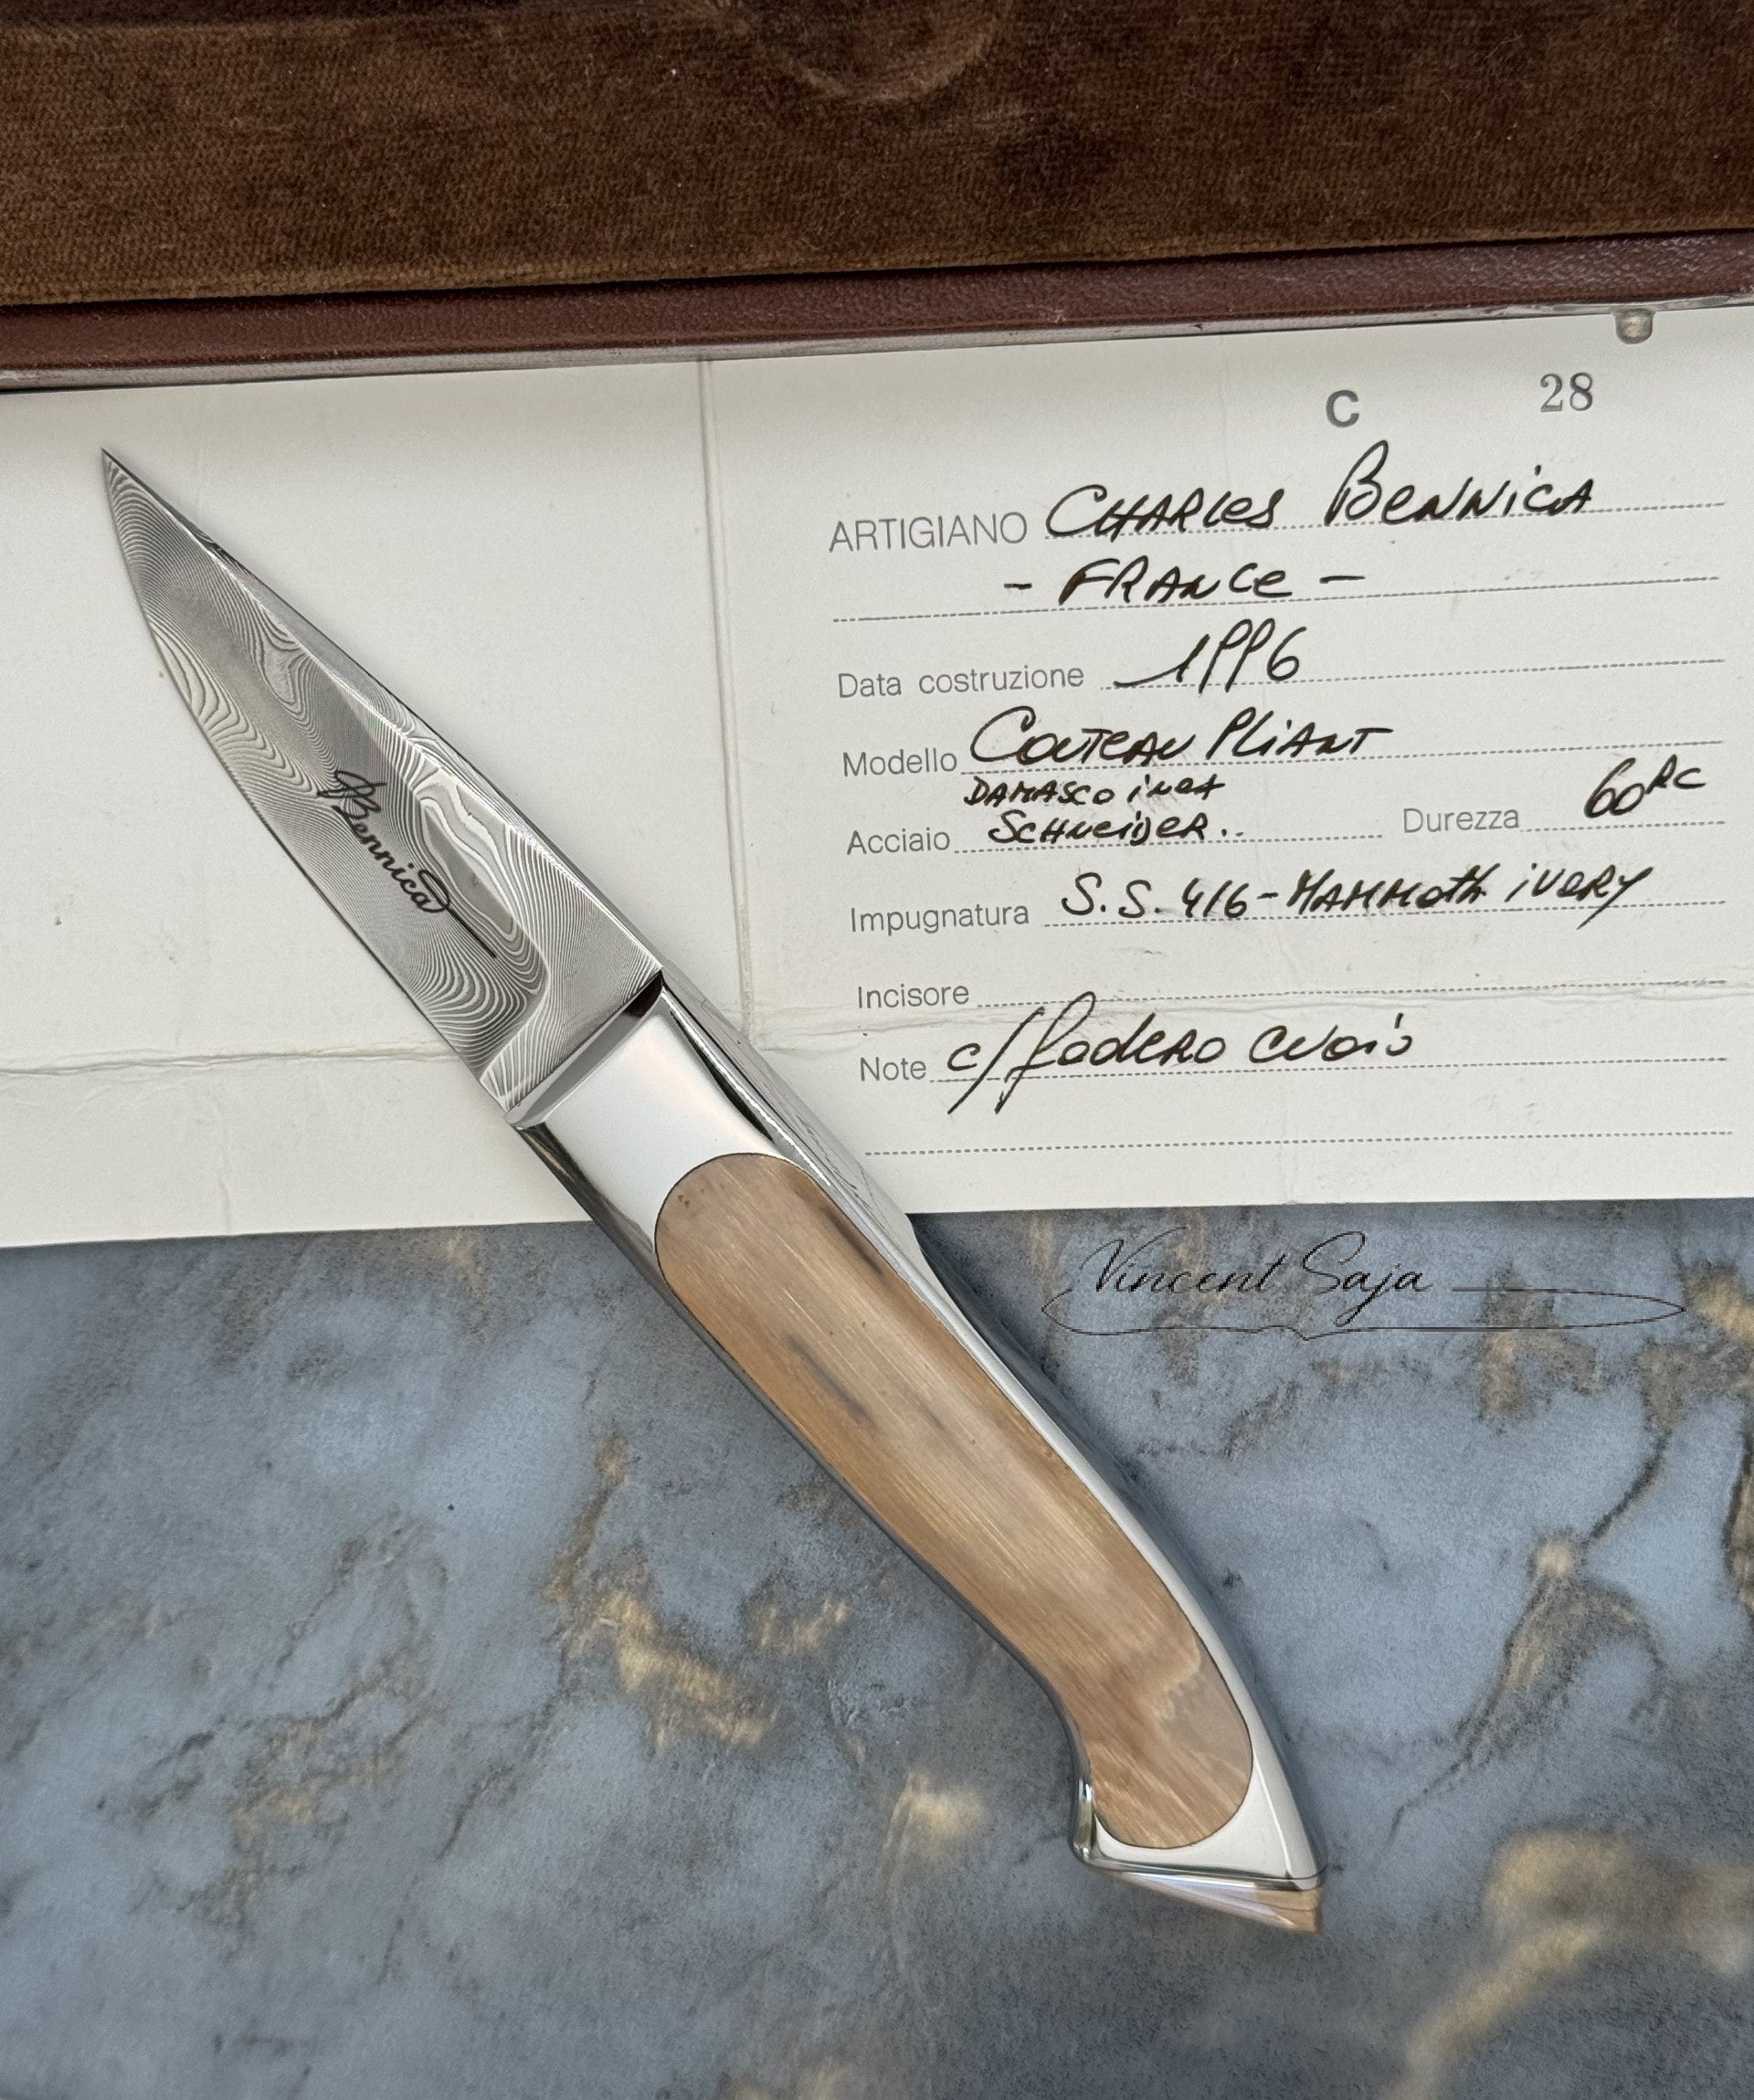 C 28
ARTIGIANO CHARLES BENNICA
- FRANCE -
Data costruzione 1996
Modello COUTEAU PLIANT
DAMASCO inox
Acciaio SCHNEIDER.. Durezza 60 RC
Impugnatura S.S. 416 - MAMMOTH IVORY
Incisore
Note c/fodero cuoio
Bennica
Vincent Saja